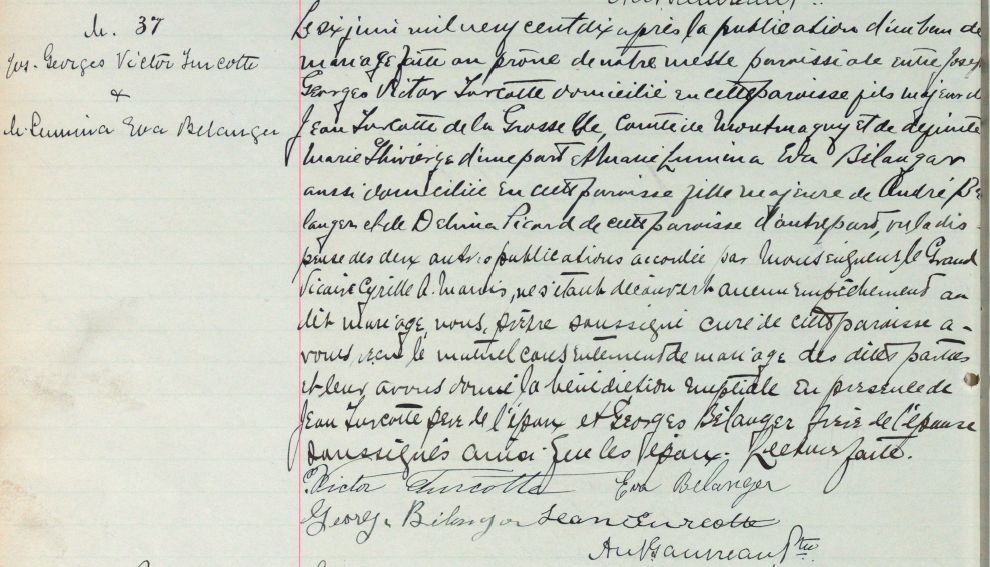 M. 37
Jos. Georges Victor Turcotte
&
M. Lumina Eva Bélanger
Le six juin mil neuf cent dix après la publication d'un ban de
mariage faite au prône de notre messe paroissiale entre Joseph
Georges Victor Turcotte domicilié en cette paroisse fils majeur de
Jean Turcotte de la Grosse Ile, Comté de Montmagny et de défunte
Marie Thivierge d'une part et Marie Lumina Eva Bélanger
aussi domiciliée en cette paroisse fille majeure de André Bé
langer et de Delvina Picard de cette paroisse d'autre part, vu la dis-
pense des deux autres publications accordée par Monseigneur le Grand
Vicaire Cyrille A. Marois, ne s'étant découvert aucun empêchement au
dit mariage, nous, prêtre soussigné curé de cette paroisse a-
vons reçu le mutuel consentement de mariage des dites parties
et leur avons donné la bénédiction nuptiale en présence de
Jean Turcotte père de l'époux et Georges Bélanger frère de l'épouse
soussignés ainsi que les époux. Lecture faite.
Victor Turcotte Eva Bélanger
George Bélanger Jean Turcotte
Gauvreau Ptre